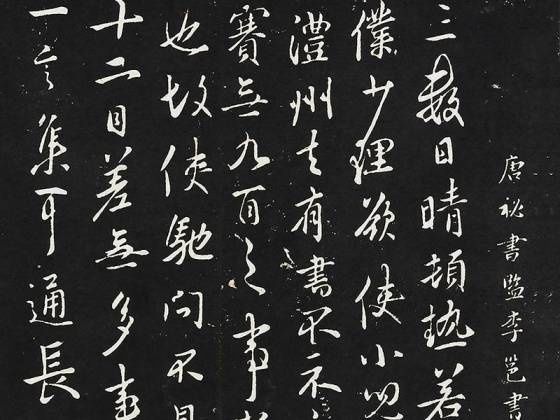 唐秘書監李邕書
三數日晴頓熱若
僕少理欲使小兒
澧州去有書不示
賽無九百之事
也故使馳問不具
十二日羞無多事
一言集可通長